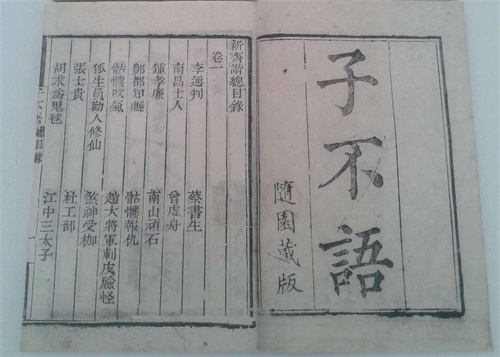 子不語
隨園藏版
新齊諧總目錄
卷一
李通判 蔡書生
南昌士人 曾虛舟
鍾孝廉 南山頑石
酆都知縣 骷髏報仇
骷髏吹氣 趙大將軍刺皮臉怪
狐生員勸人修仙 煞神受枷
張士貴 杜工部
胡求為鬼毬 江中三太子
總目錄